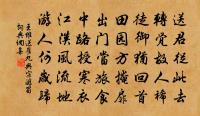 送君從此去
轉覺故人稀
徒御猶回首
田園方掩扉
出門當旅食
中路授寒衣
江漢風流地
游人何歲歸
王維送崔九興宗遊蜀
詞典網集